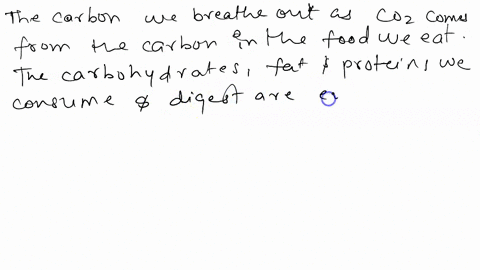 The carbon we breathe out as CO2 comes
from the carbon in the food we eat.
The carbohydrates, fat & protein, we
consume & digest are e